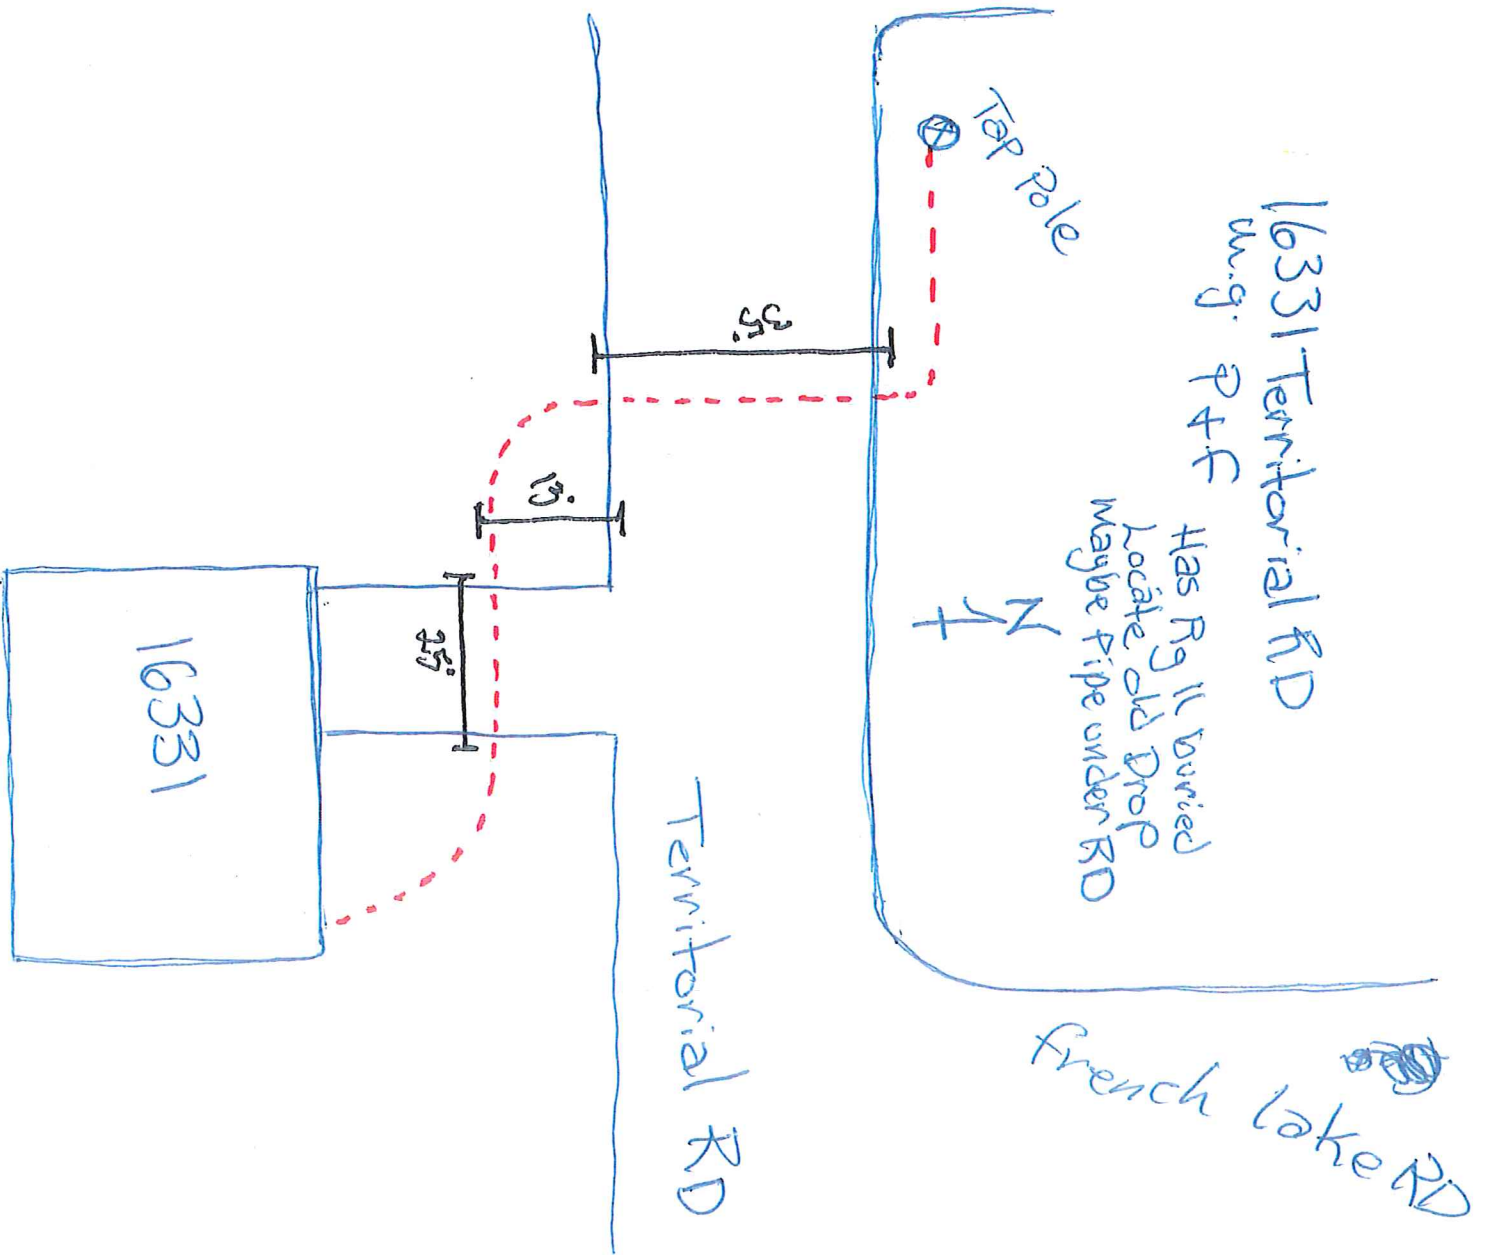 16331 Territorial RD
m.g. P & F
Has Rg 11 buried
Locate old Drop
Maybe Pipe under RD
N
Tap Pole
35'
13'
25'
Territorial RD
french lake RD
16331